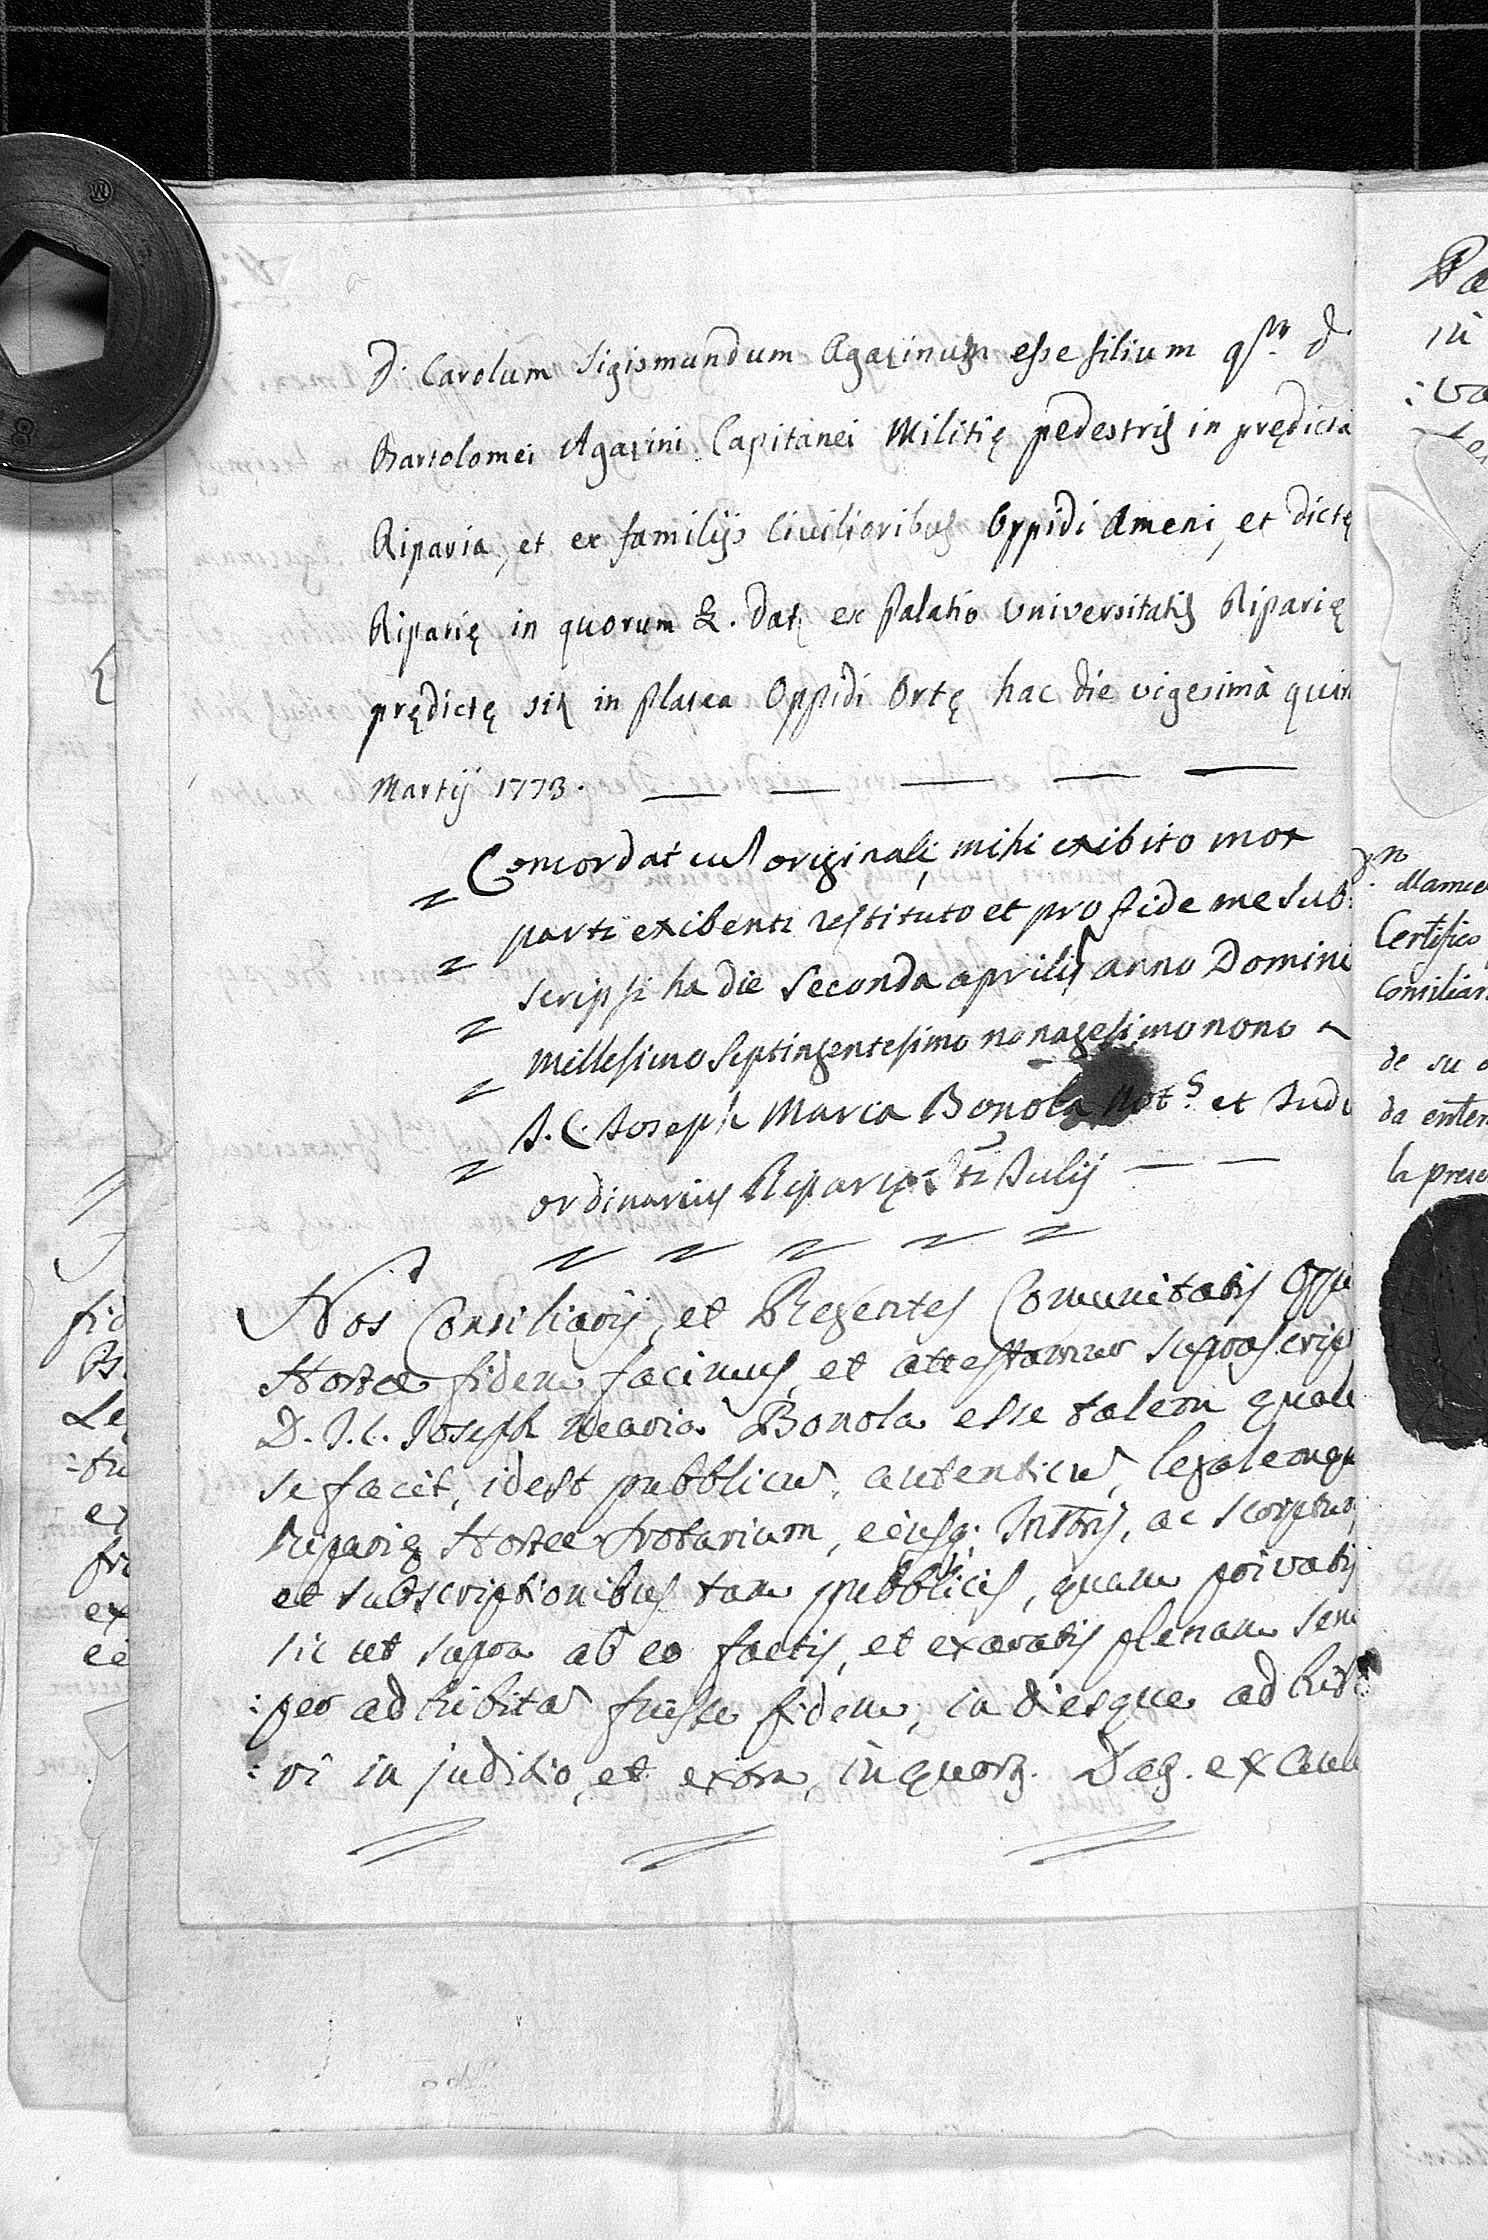 D. Carolum Sigismundum Agazinum esse filium qm. D.
Bartolomei Agazini Capitanei Militię pedestris in prędicta
Riparia, et ex familijs Civilioribus Oppidi Ameni, et dictę
Riparię in quorum &. Dat. ex Palatio Universitatis Riparię
prędictę sit. in Platea Oppidi Ortę hac die vigesimà quin
Martij 1773.
Concordat cum originali mihi exibito mox
parti exibenti restituto et pro fide me sub:
scripsi ha die Seconda aprilis anno Domini
Millesimo Septingentesimo nonagesimo nono
J. C. Joseph Maria Bonola Not.s et Jud
ordinarius Riparię Sti Julij
Nos Consiliarij, et Regentes Comunitatis Oppi
Hortae fidem facimus, et attestamur suprascrip
D. J. C. Joseph Maria Bonola esse talem quale
se facit, idest pubblicum, autenticum, legalemqu
Riparię Hortae Notarium, eiusq. Instris, ac scriptur
et subscriptionibus tam pubblicis, quam privatis
sic ut supra ab eo factis, et exaratis plenam sem
:per adhibitam fuisse fidem, in diesque adhibe
:ri in juditio, et extra, in quorum. Dat. ex
Pa
in
: va
D.n Manue
Certifico
Consiliar
de su o
da enter
la prese
fid
Le
-tu
ex